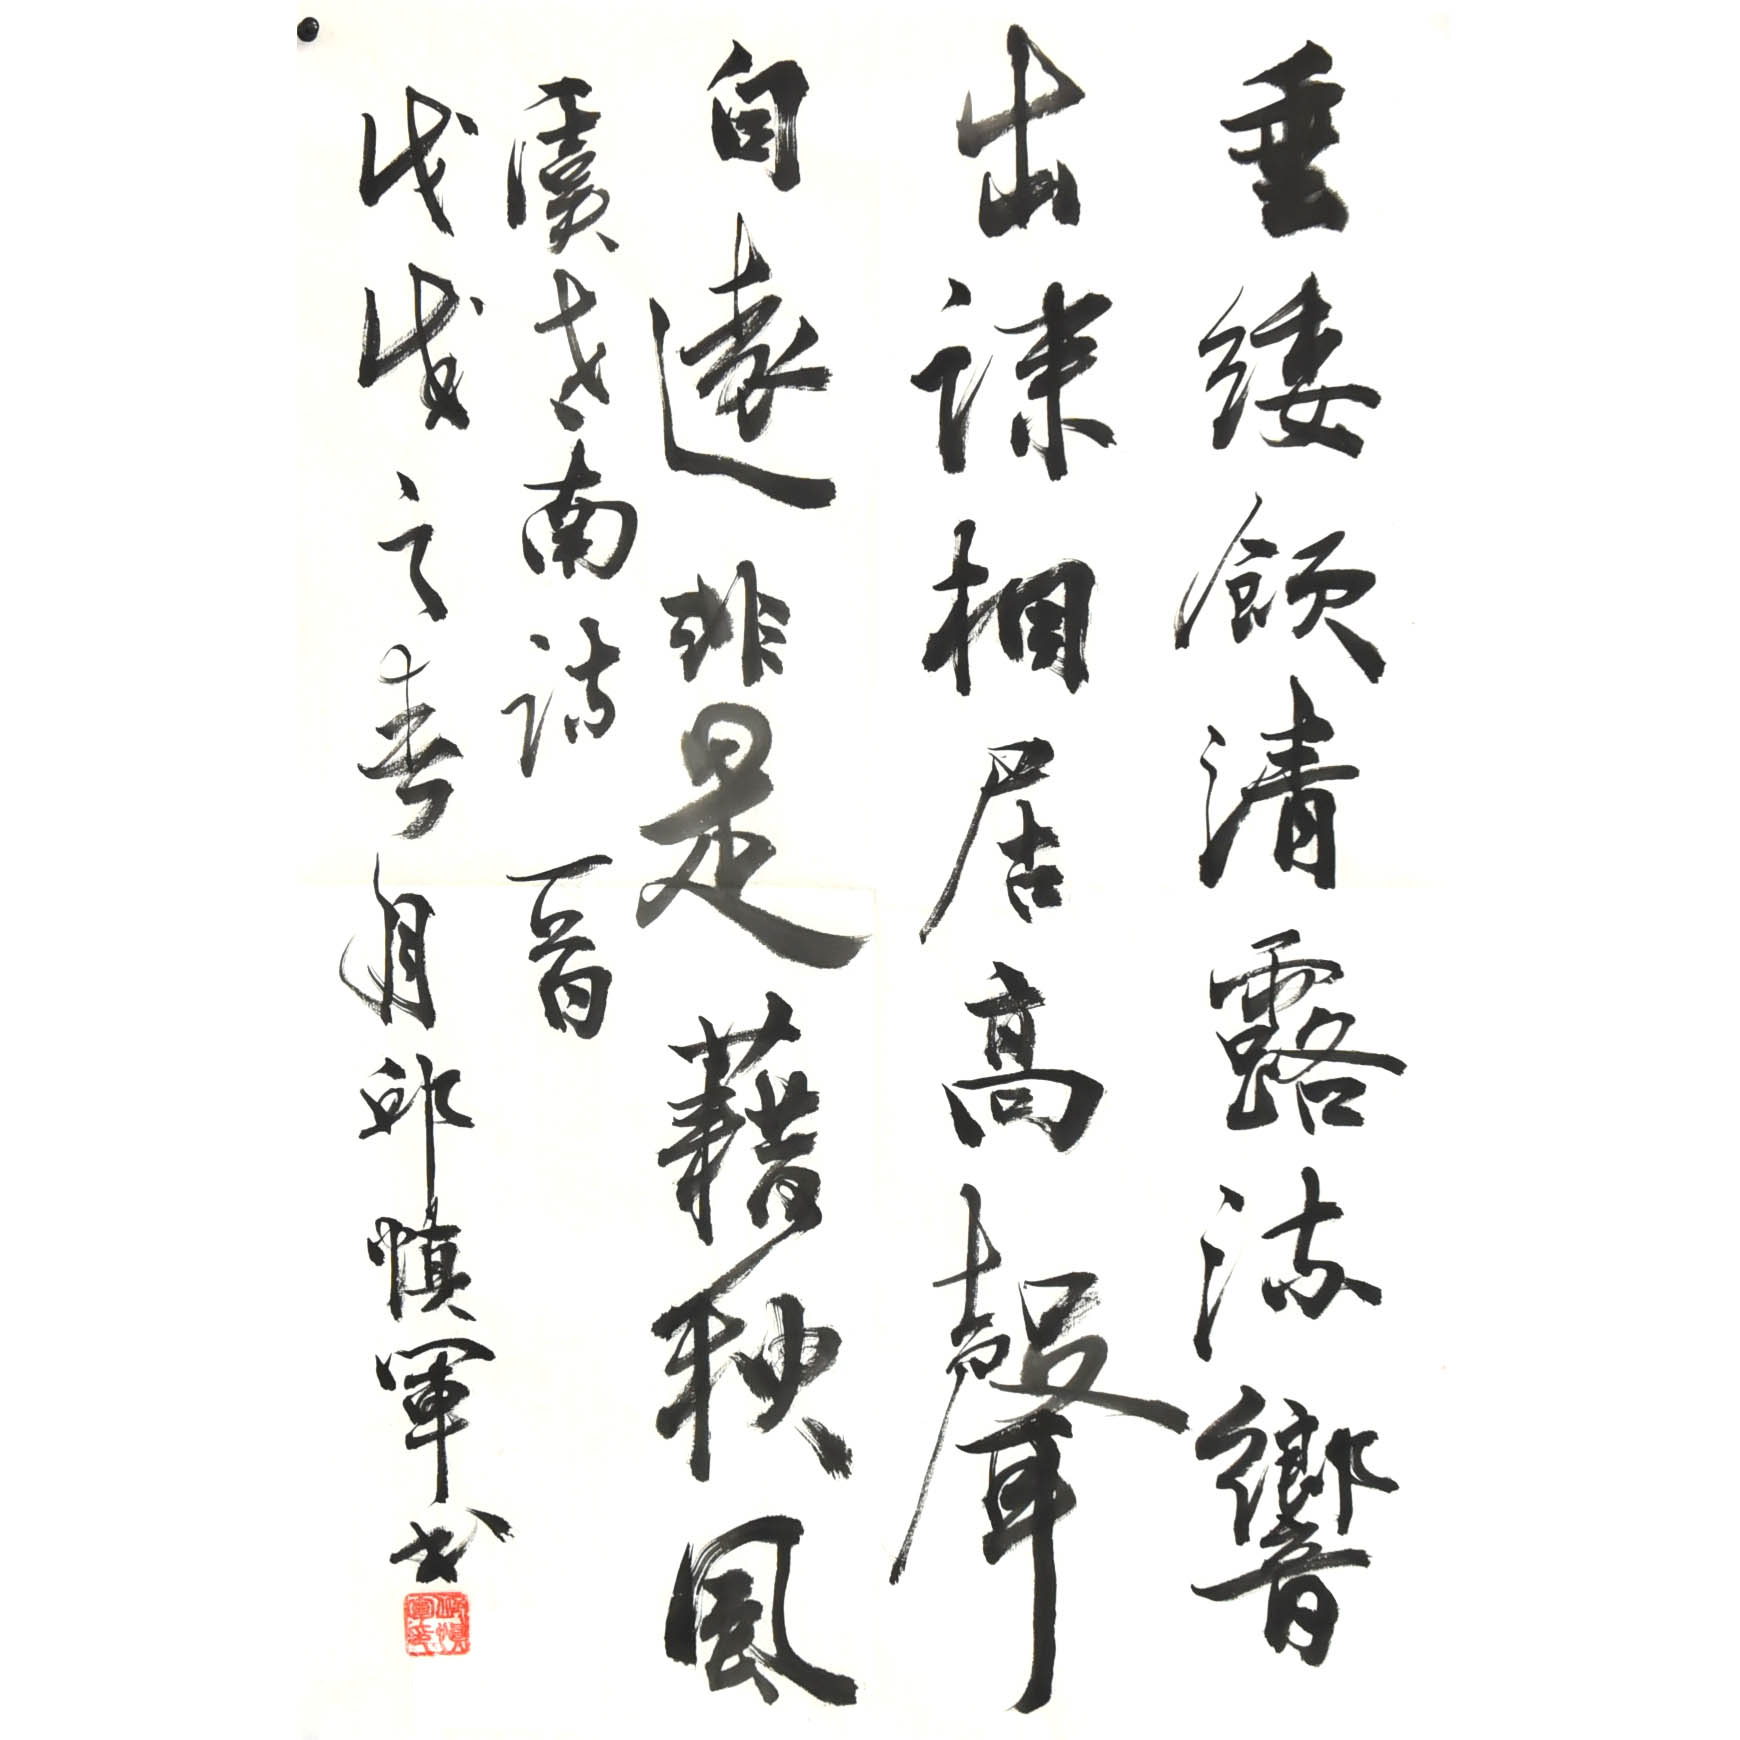 垂緌飲清露流響
出疎桐居高聲
自遠非是藉秋風
虞世南詩一首
戊戌之春月邱慎軍书
邱慎軍印